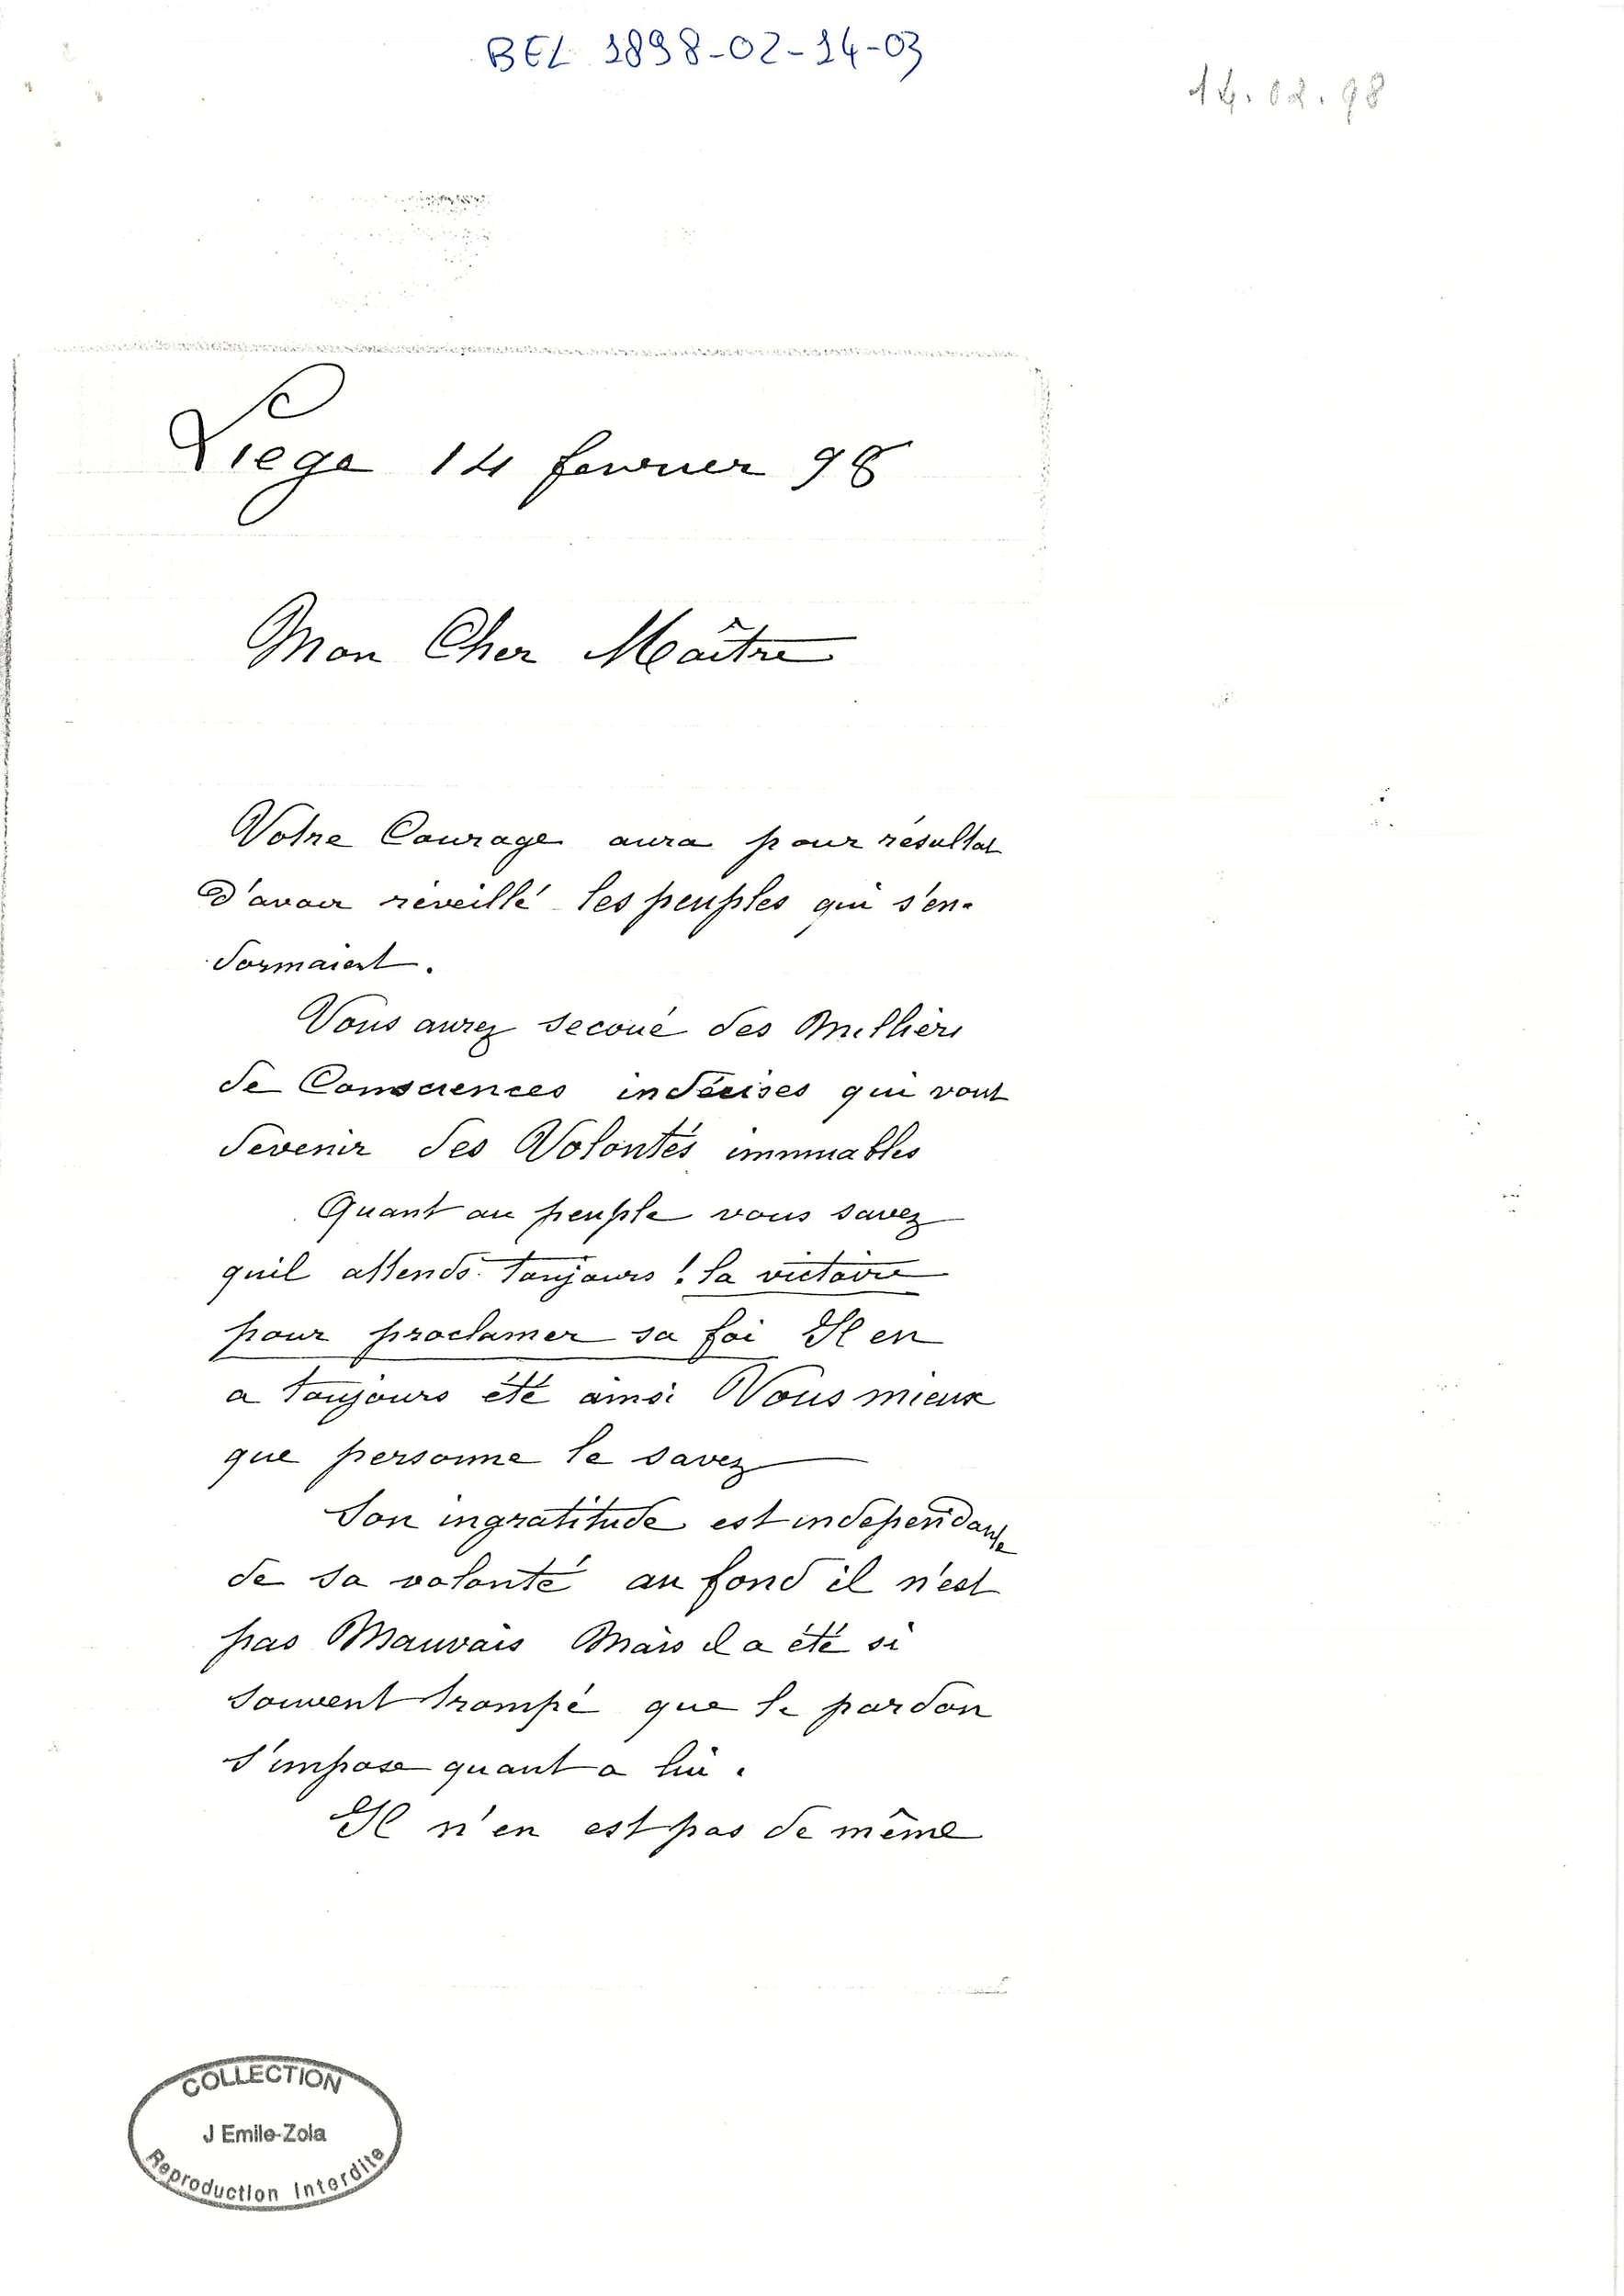 BEL 1898-02-14-03
14.02.98
Liege 14 fevrier 98
Mon Cher Maître
Votre Courage aura pour résultat
d'avoir réveillé les peuples qui s'en-
dormaient.
Vous aurez secoué des Milliers
de Consciences indécises qui vont
devenir des Volontés immuables
Quant au peuple vous savez
quil attends toujours ! la victoire
pour proclamer sa foi Il en
a toujours été ainsi Vous mieux
que personne le savez
Son ingratitude est independante
de sa volonté au fond il n'est
pas Mauvais Mais il a été si
souvent trompé que le pardon
s'impose quant a lui.
Il n'en est pas de même
COLLECTION
J Emile-Zola
Reproduction Interdite